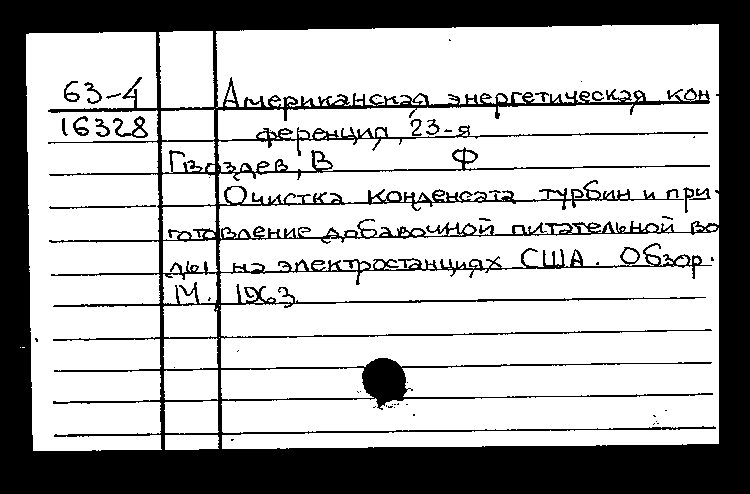 63-4 Американская энергетическая кон-
16328 ференция, 23-я
Гвоздев, В Ф
Очистка конденсата турбин и при-
готовление добавочной питательной во
ды на электростанциях США. Обзор.
М. 1963